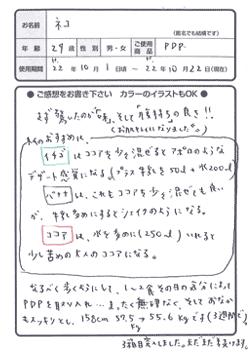 お名前 ネコ
(匿名でも結構です)
年齢 29歳 性別 男・女 ご使用商品 PDP
使用期間 22年10月1日頃 ～ 22年10月22日(現在)
● ご感想をお書き下さい カラーのイラストもOK ●
まず驚いたのが「味」、そして「腹持ち」の良さ!!
(お通じも良くなりました。)
私のおすすめは、
イチゴ はココアを少々混ぜるとアポロのような
デザート感覚になる。(プラス牛乳を50ml+水200ml)
バナナ は、これもココアを少々混ぜても良い
が、牛乳多めにするとシェイクのようになる。
ココア は、水を多めに(250ml)いれると
少し苦めの大人のココアになる。
なるべく歩くようにして、1~2食その日の気分によって
PDPを取り入れ…まったく無理なく、そしておなか
もスッキリとして、158cm 57.5kg → 55.6kgです(3週間で)
3箱目突入しました。まだまだ続けます。